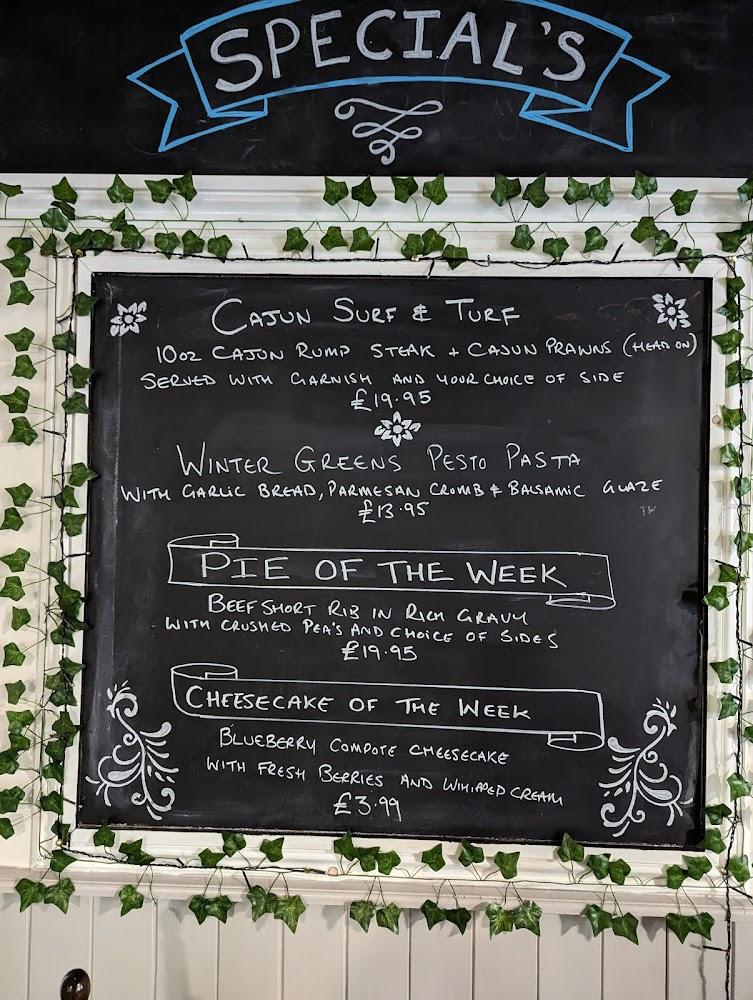 SPECIAL'S
CAJUN SURF & TURF
10oz CAJUN RUMP STEAK + CAJUN PRAWNS (HEAD ON)
SERVED WITH GARNISH AND YOUR CHOICE OF SIDE
£19.95
WINTER GREENS PESTO PASTA
WITH GARLIC BREAD, PARMESAN CROMB & BALSAMIC GLAZE
£13.95
PIE OF THE WEEK
BEEF SHORT RIB IN RICH GRAVY
WITH CRUSHED PEA'S AND CHOICE OF SIDES
£19.95
CHEESECAKE OF THE WEEK
BLUEBERRY COMPOTE CHEESECAKE
WITH FRESH BERRIES AND WHIPPED CREAM
£3.99